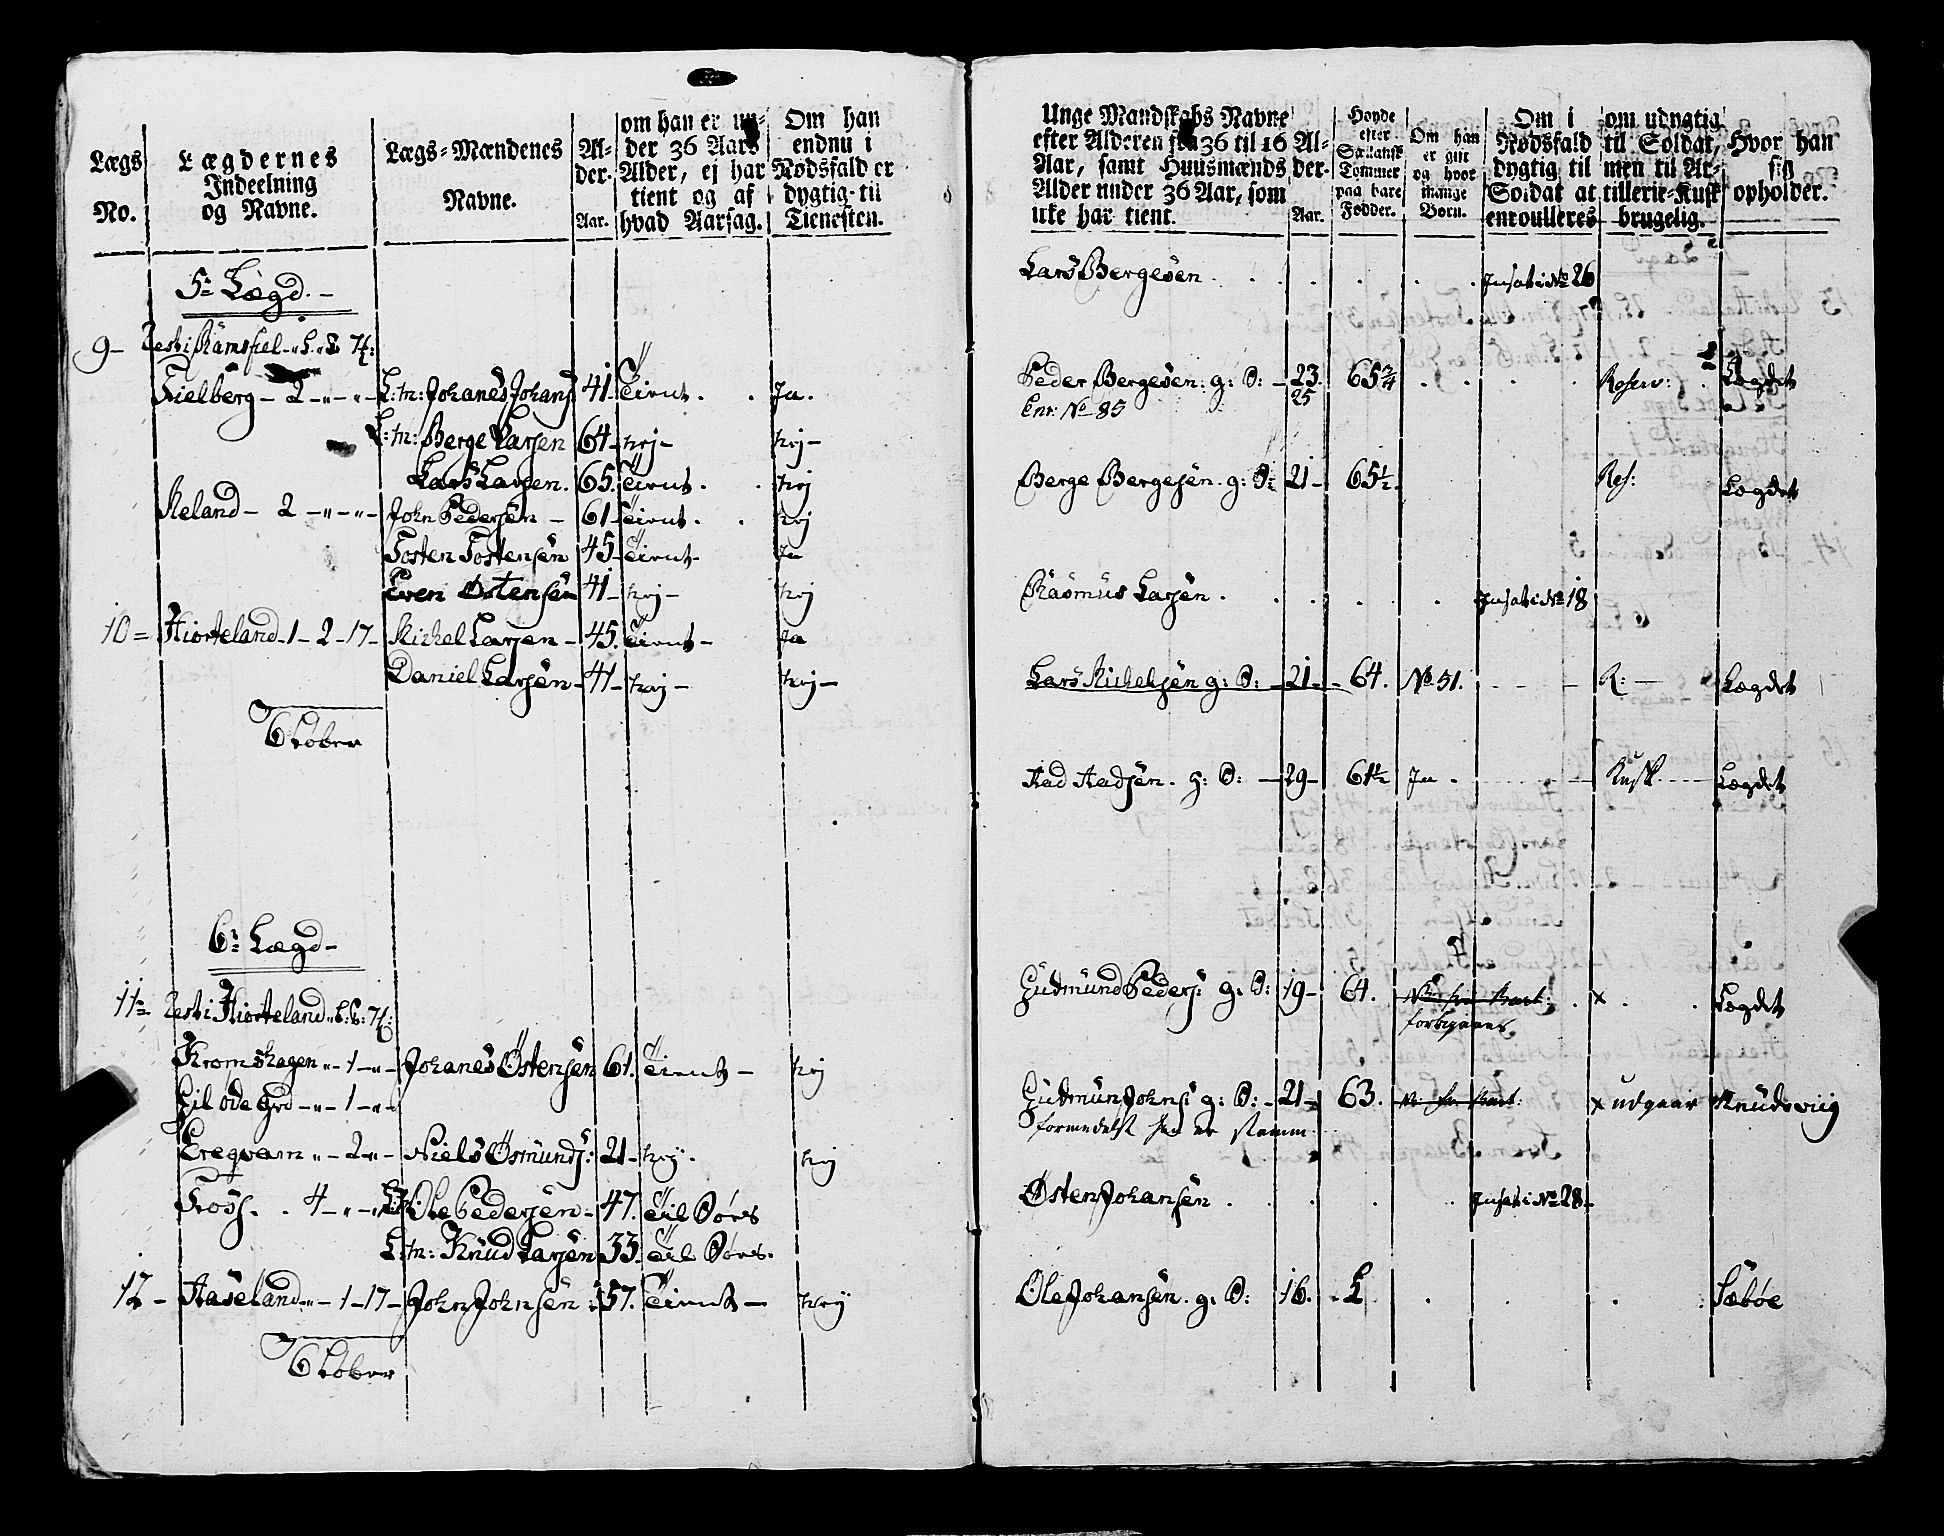 Lægs No.
Lægdernes Indeelning og Navne.
Lægs-Mændenes Navne.
Alder. Aar.
om han er under 36 Aars Alder, ej har tient og af hvad Aarsag.
Om han endnu i Nødsfald er dygtig til Tienesten.
5te Lægd.
9 - Rest i Ramsfiel
Fielberg - 2 - L:m: Johanes Johans 41. Tient. Ja.
L:m: Berge Larsen 64 - Nej - Nej -
Lars Larsen. 65. Tient. Nej
Meland - 2 - John Pedersen - 61 - Tient. Nej
Tosten Tostensen 45 - Tient - Ja
Even Østensen 41 - Nej - Nej
10 = Hiorteland - 1 - 2 - 17 - Michel Larsen - 45. Tient - Ja
Daniel Larsen - 41 - Nej - Nej -
6 Løber
6te Lægd -
11 = Rest i Hiorteland
Kromshagen - 1 - Johanes Østensen 61. Tient - Nej
Til øde Grd - 1 -
Eregvam - 2 - Niels Osmunds: 21 - Nej. Nej
Fross. 4 - L:m: Ole Pedersen - 47. Til Søes
L:m: Knud Larsen 33. Til Søes.
12 - Haaseland - 1 - 17 - John Johnsen 57. Tient - Nej
6 Løber
Unge Mandskabs Navne efter Alderen fra 36 til 16 Aar, samt Huusmænds Alder under 36 Aar, som ikke har tient.
Alder. Aar.
Høyde efter Sællansk Tommer paa bare Fødder.
Om han er gift og hvor mange Børn.
Om i Nødsfald dygtig til Soldat at enroulleres
om udygtig til Soldat, men til Artillerie-Kusk brugelig.
Hvor han sig opholder.
Lars Bergesen. Insat i No 26
Peder Bergesen. g: S: - 23. 65 3/4 Reserv: Lægdet
Enr: No 85 25
Berge Bergesen. g: S: 21 - 65 1/2. Res: Lægdet
Rasmus Larsen. Insat i No 18
Lars Michelsen g: S: - 21 - 64. No 51. R: - Lægdet
Aad Aadsen. g: S: - 29 - 61 1/2 Ja - Kusk - Lægdet
Gudmund Peders: g: S: 19 - 64. x Lægdet
forbigaaes
Gudmun Johns: g: S: - 21 - 63. x udgaar Knudsviig
formedelst han er stamm
Østen Johansen. Insat i No 28 -
Ole Johansen. g: S: 16. Søbøe